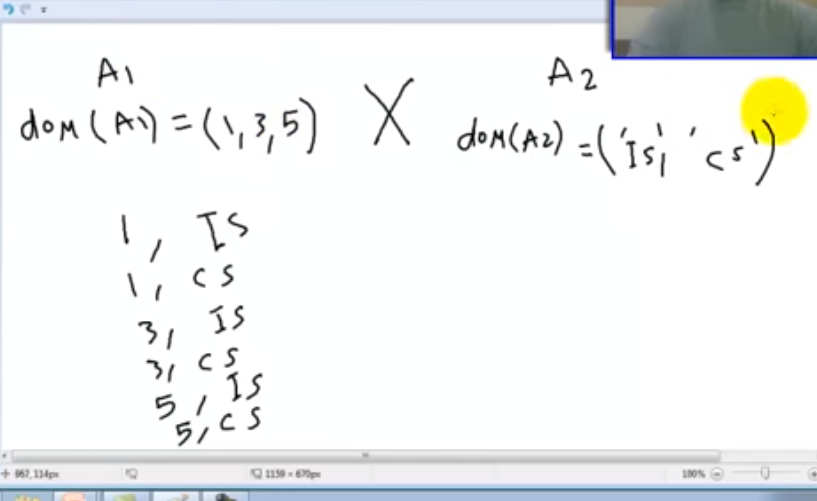 A1
A2
dom(A1) = (1,3,5) X dom(A2) = ('IS', 'CS')
1, IS
1, CS
3, IS
3, CS
5, IS
5, CS
867, 114px
1159 × 670px
100%